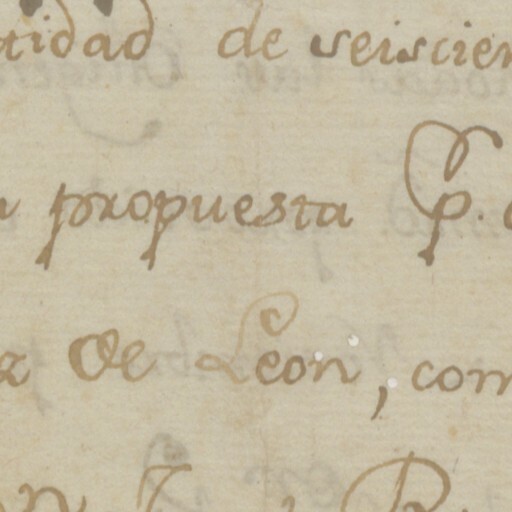 tidad de seiscien
propuesta p.
z de Leon, com